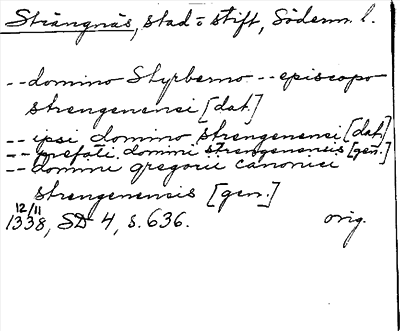 Strängnäs, stad o stift, Söderm. l.
-- domino Styrberno -- episcopo
strengenensi [dat.]
-- ipsi domino strengenensi [dat.]
-- prefati domini strengenensis [gen.]
-- domini gregorii canonici
strengenensis [gen.]
12/11
1338, SD 4, s. 636. orig.